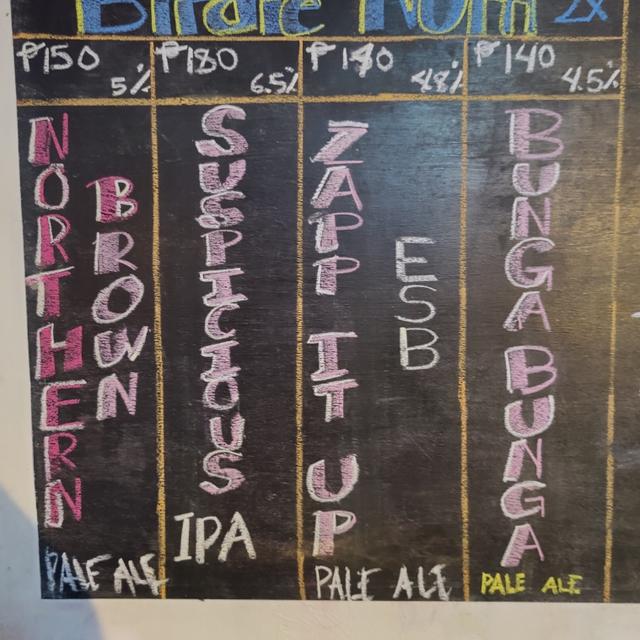 2X
₱150 5%
₱180 6.5%
₱140 4.8%
₱140 4.5%
NORTHERN
BROWN
PALE ALE
SUSPICIOUS
IPA
ZAPP IT UP
ESB
PALE ALE
BUNGA BUNGA
PALE ALE